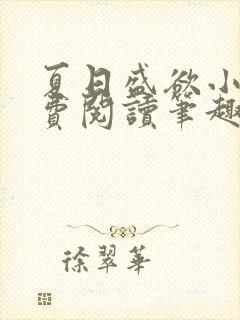 夏日盛欲小
費閱讀筆趣
徐翠華